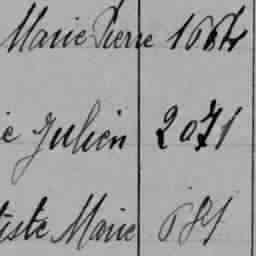 Marie Pierre 1664
ie Julien 2071
tiste Marie 681